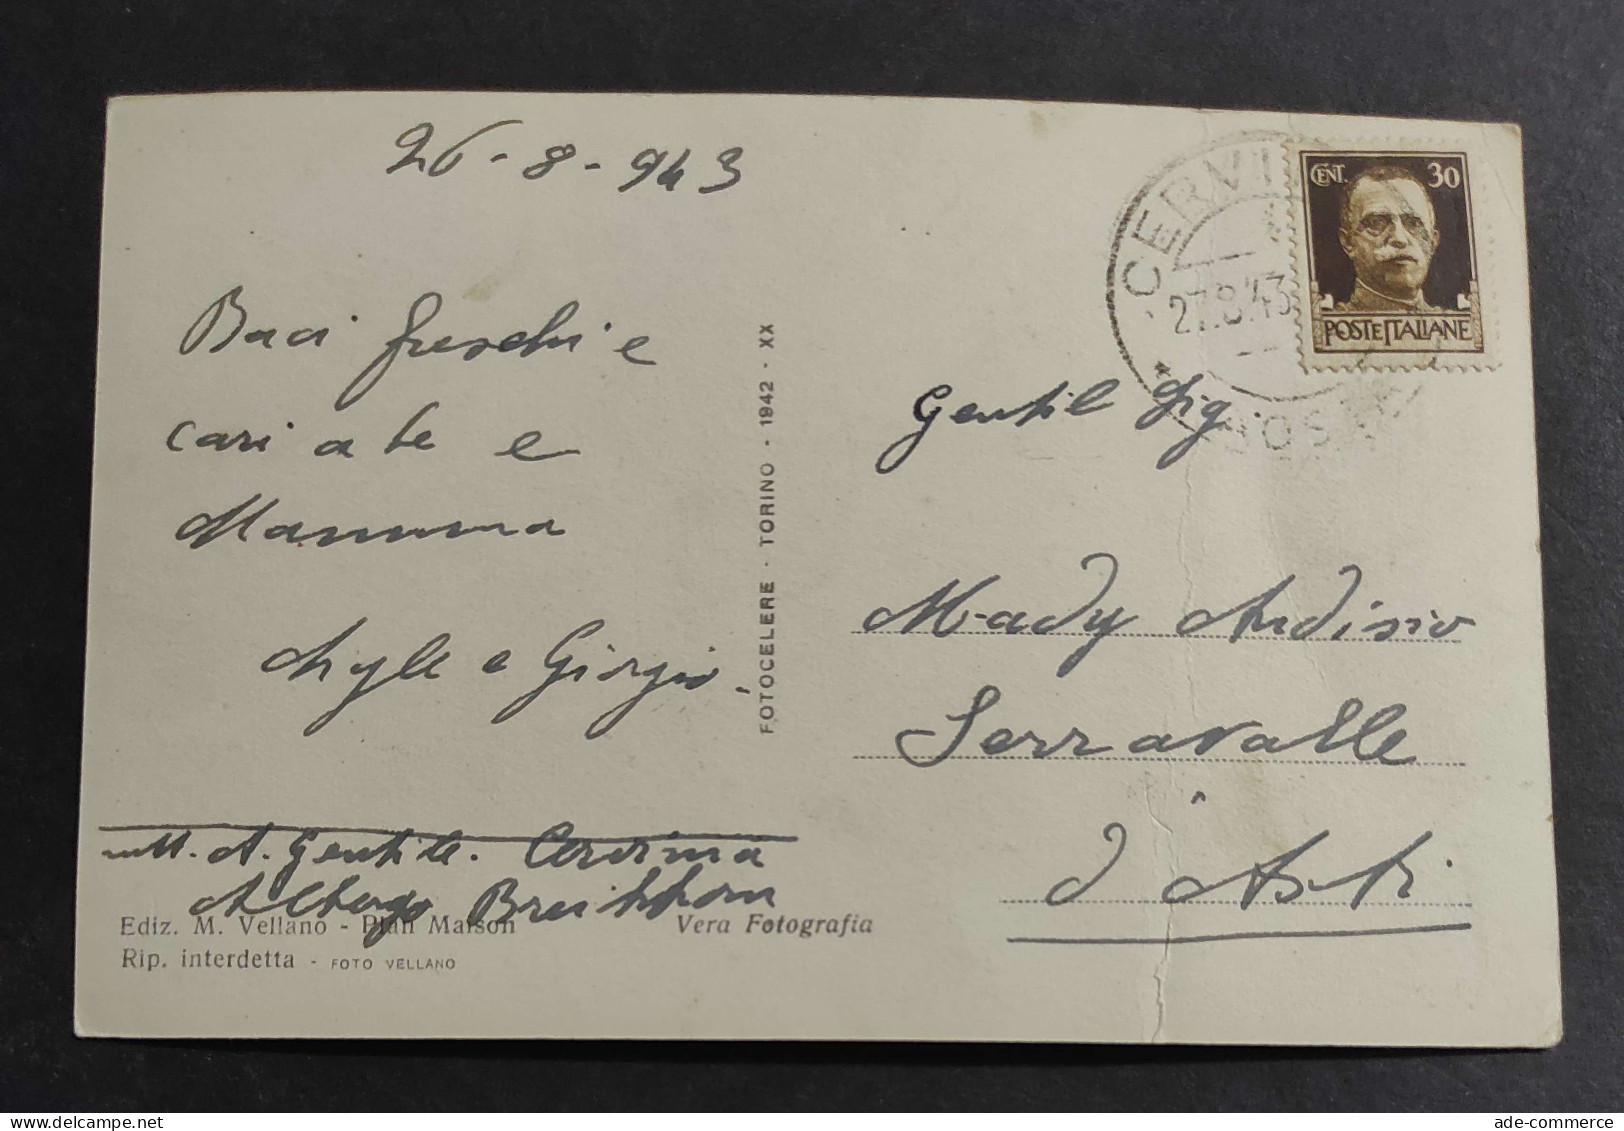 26-8-943
Baci freschi e
cari a te e
Mamma
e Giorgio.
mitt. A. Gentile. Cervinia
Albergo Breithhorn
Ediz. M. Vellano - Plan Maison
Vera Fotografia
Rip. interdetta - FOTO VELLANO
FOTOCELERE - TORINO - 1942 - XX
CERVI
27.8.43
CENT. 30
POSTE ITALIANE
Gentil Sig.
Mady Ardisio
Serravalle
d'Asti
ade-commerce
www.delcampe.net